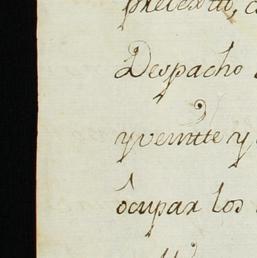 pretexto,
Despacho
yveintte y
ôcupar los